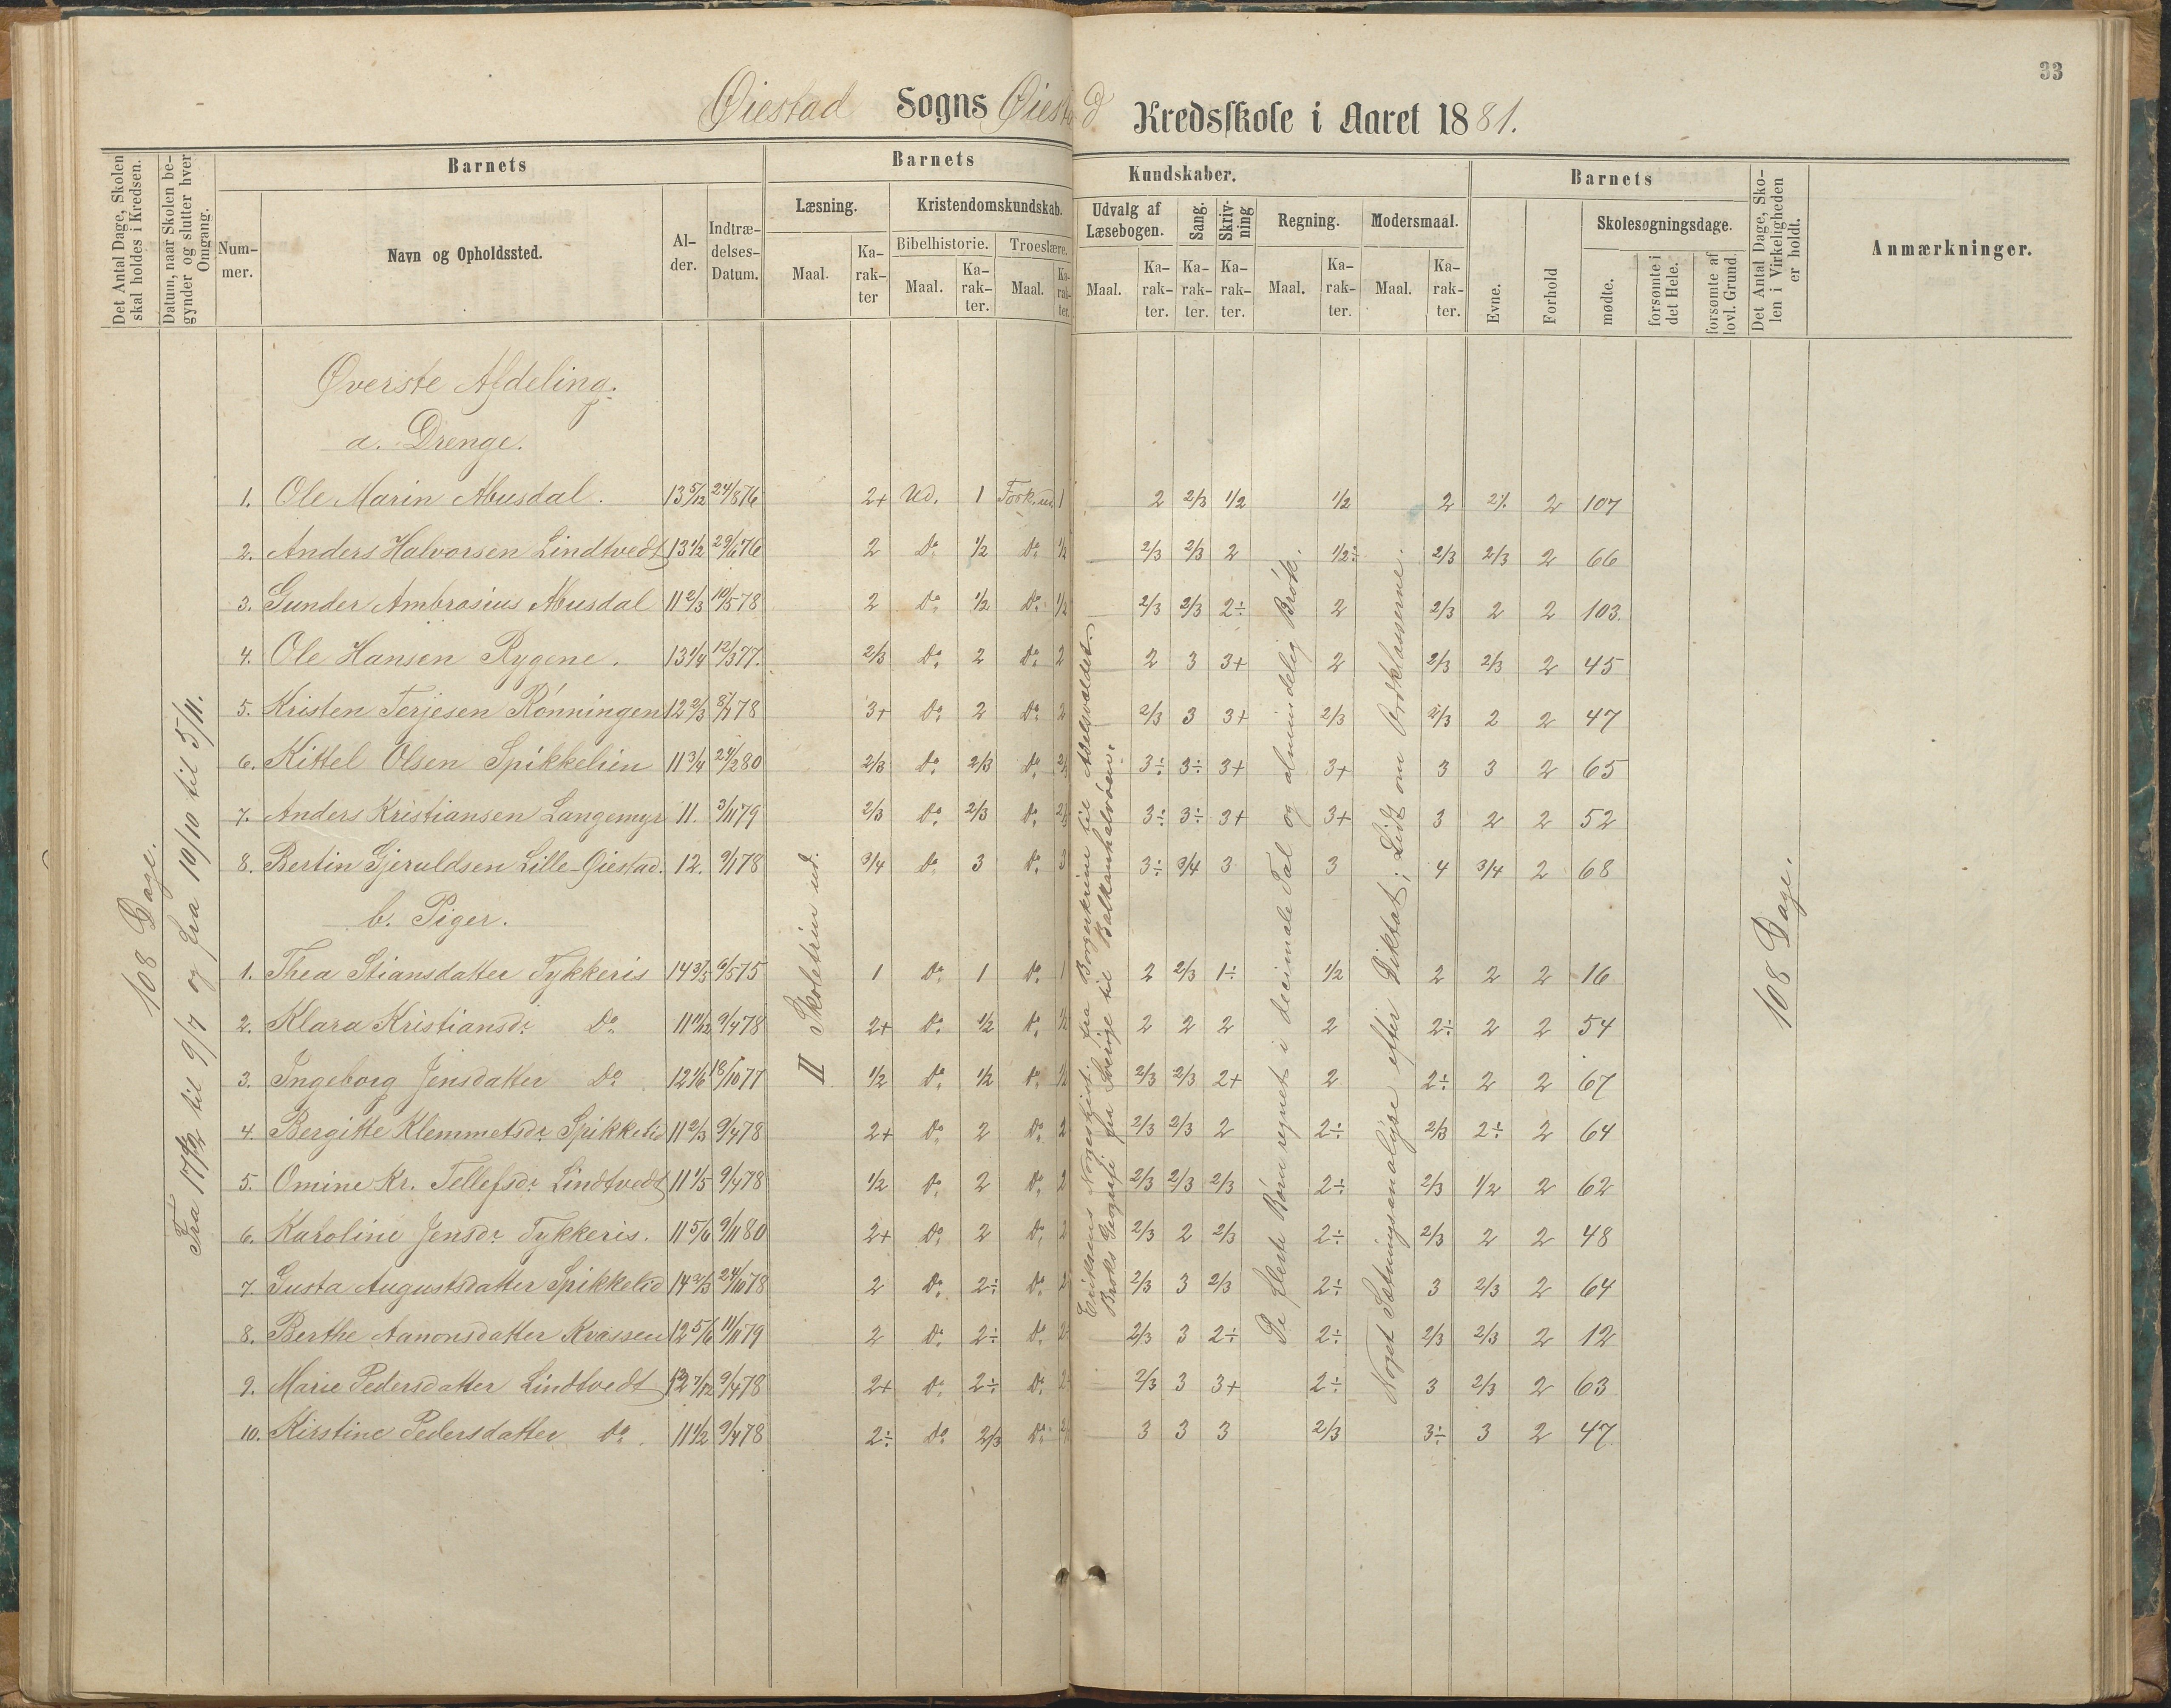 33
Øiestad Sogns Øiestad Kredsskole i Aaret 1881.
Det Antal Dage, Skolen skal holdes i Kredsen.
Datum, naar Skolen begynder og slutter hver Omgang.
Barnets
Nummer.
Navn og Opholdssted.
Alder.
Indtrædelses-Datum.
Barnets Kundskaber.
Læsning.
Maal.
Karakter
Kristendomskundskab.
Bibelhistorie.
Maal.
Karakter.
Troeslære.
Maal.
Karakter.
Udvalg af Læsebogen.
Maal.
Karakter.
Sang.
Karakter.
Skrivning
Karakter.
Regning.
Maal.
Karakter.
Modersmaal.
Maal.
Karakter.
Barnets
Evne.
Forhold
Skolesøgningsdage.
mødte.
forsømte i det Hele.
forsømte af lovl. Grund.
Det Antal Dage, Skolen i Virkeligheden er holdt.
Anmærkninger.
108 Dage.
til 9/7 og fra 10/10 til 5/11.
II Skoletrin ud.
fra Borgerkrien til Adelsvældet.
Broks Geografi fra Sverige til Balkanhalvøen.
De fleste Børn regnet i decimale Tal og almindelig Brøk.
Noget Sætningsanalyse efter Diktat; Lidt om Ordklasserne.
108 Dage.
Øverste Afdeling.
a. Drenge.
1. Ole Marin Abusdal. 13 5/12 24/8 76 2+ Ud. 1 Fork. ud 1 2 2/3 1/2 1/2 2 2 107
2. Anders Halvorsen Lindtvedt 13 1/2 29/6 76 2 Do. 1/2 Do. 1/2 2/3 2/3 2 1/2÷ 2/3 2/3 2 66
3. Gunder Ambrosius Abusdal 11 2/3 10/5 78 2 Do. 1/2 Do. 1/2 2/3 2/3 2÷ 2 2/3 2 2 103.
4. Ole Hansen Rygene. 13 1/4 12/3 77. 2/3 Do. 2 Do. 2 2 3 3+ 2 2/3 2/3 2 45
5. Kristen Terjesen Rönningen 12 2/3 78 3+ Do. 2 Do. 2 2/3 3 3+ 2/3 2/3 2 2 47
6. Kittel Olsen Spikkelien 11 3/4 24/2 80 2/3 Do. 2/3 Do. 2/3 3÷ 3÷ 3+ 3+ 3 3 2 65
7. Anders Kristiansen Langemyr 11. 3/11 79 2/3 Do. 2/3 Do. 2/3 3÷ 3÷ 3+ 3+ 3 2 2 52
8. Bertin Gjeruldsen Lille-Øiestad. 12. 9/1 78 3/4 Do 3 Do. 3 3÷ 3/4 3 3 4 3/4 2 68
b. Piger.
1. Thea Stiansdatter Tykkeris 14 6/5 75 1 Do. 1 Do. 1 2 2/3 1÷ 1/2 2 2 2 16
2. Klara Kristiansdr Do 11 11/12 9/4 78 2+ Do. 1/2 Do. 1/2 2 2 2 2 2÷ 2 2 54
3. Ingeborg Jensdatter Do 12 1/6 18/10 77 1/2 Do. 1/2 Do. 1/2 2/3 2/3 2+ 2 2÷ 2 2 67
4. Bergitte Klemmetsdr. Spikkelid 11 2/3 9/4 78 2+ Do. 2 Do. 2 2/3 2/3 2 2÷ 2/3 2÷ 2 64
5. Omine Kr. Tellefsdr. Lindtvedt 11 1/5 9/4 78 1/2 Do. 2 Do. 2 2/3 2/3 2/3 2÷ 2/3 1/2 2 62
6. Karoline Jensdr. Tykkeris. 11 5/6 9/11 80 2+ Do. 2 Do. 2 2/3 2 2/3 2÷ 2/3 2 2 48
7. Gusta Augustsdatter Spikkelid 14 2/3 24/10 78 2 Do. 2÷ Do. 2 2/3 3 2/3 2÷ 3 2/3 2 64
8. Berthe Aanonsdatter Kvassen 12 5/6 11/11 79 2 Do. 2÷ Do. 2÷ 2/3 3 2÷ 2÷ 2/3 2/3 2 12
9. Marie Pedersdatter Lindtvedt 12 7/12 9/4 78 2+ Do. 2÷ Do. 2÷ 2/3 3 3+ 2÷ 3 2/3 2 63
10. Kirstine Pedersdatter Do. 11 1/2 9/4 78 2÷ Do 2/3 Do. 2/3 3 3 3 2/3 3÷ 3 2 47